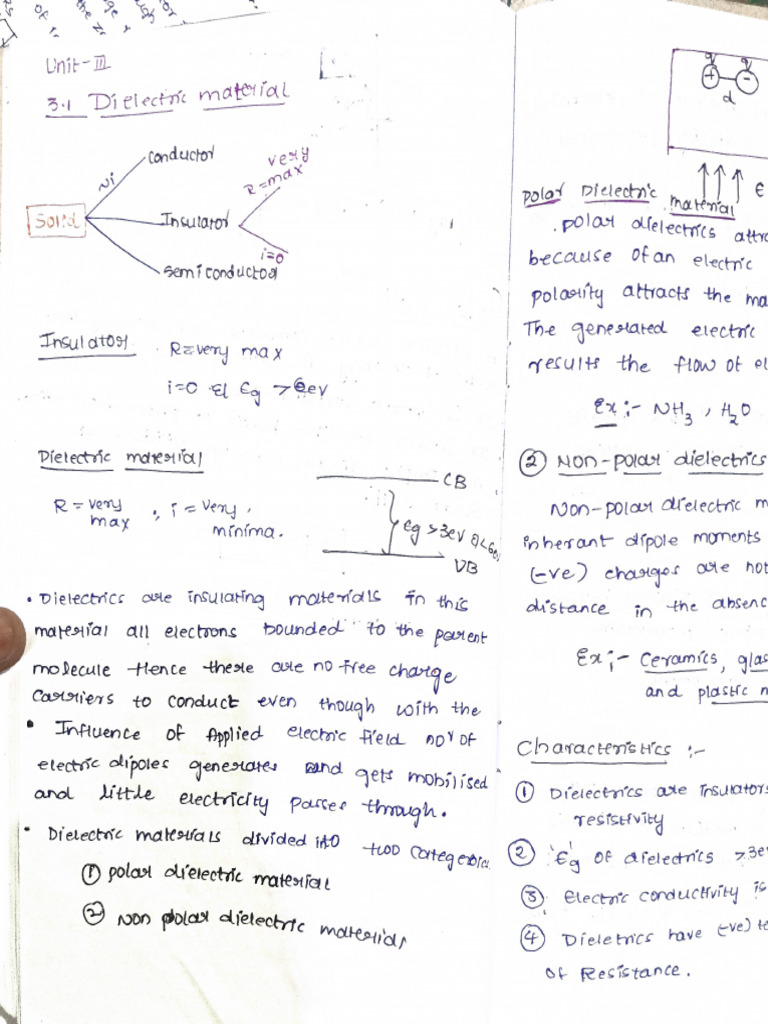 Unit-III
3.1 Dielectric material
conductor
Solid
Insulator
semiconductor
very
R=max
i=0
Insulator R=very max
i=0 & Eg > 6ev
Dielectric material
R = very max ; i = very minima.
CB
Eg >3ev & <6ev
VB
• Dielectrics are insulating materials in this
material all electrons bounded to the parent
molecule Hence there are no free charge
carriers to conduct even though with the
• Influence of Applied electric field no^r of
electric dipoles generates and gets mobilised
and little electricity passes through.
• Dielectric materials divided into two categories
① polar dielectric material
② Non polar dielectric materials
q q
+ -
d
E
Polar Dielectric material
.polar dielectrics attra
because of an electric
polarity attracts the ma
The generated electric
results the flow of el
Ex :- NH3 , H2O
② Non-polar dielectrics
Non-polar dielectric m
inherant dipole moments
(-ve) charges are not
distance in the absenc
Ex ;- Ceramics, glas
and plastic m
Characteristics :-
① Dielectrics are insulators
resistivity
② 'Eg' of dielectrics >3ev
③ Electric conductivity is
④ Dieletrics have (-ve) te
of Resistance.